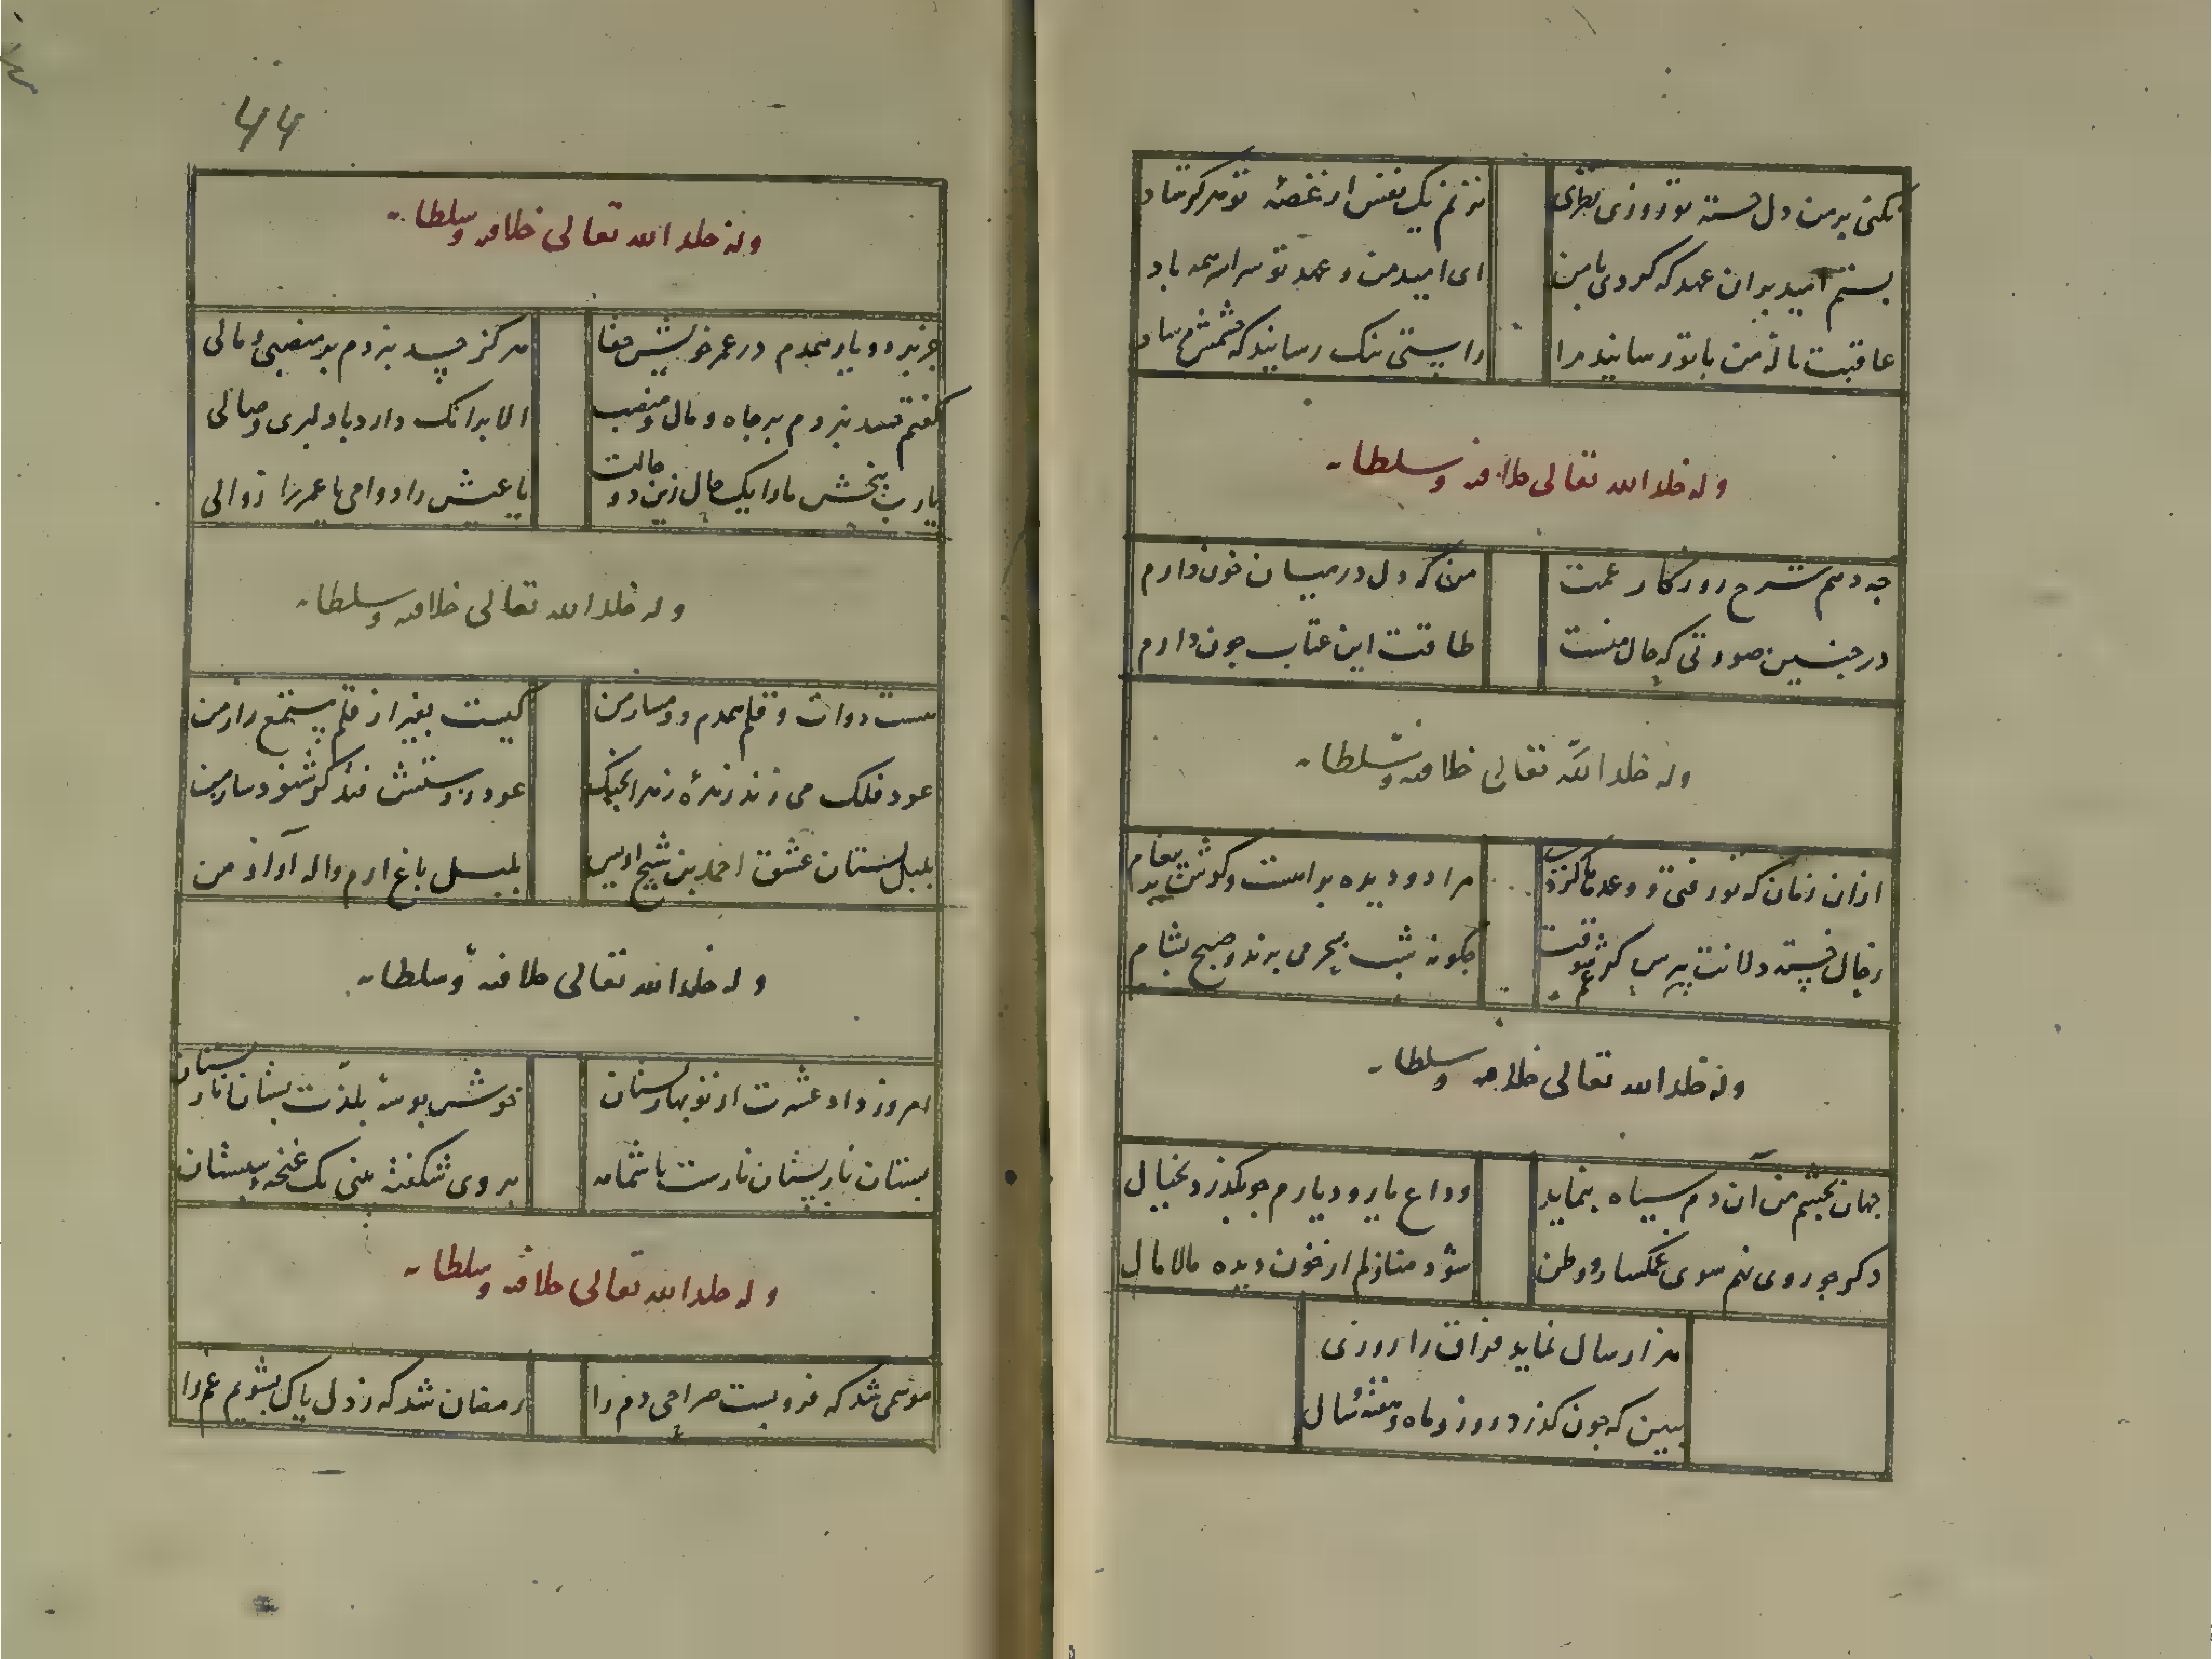 نکنی بر من دل خسته تو روزی نظری
نزنم یک نفس از غصه تو هرگز شاد
بستم امید بر آن عهد که کردی با من
ای امید من و عهد تو سراسر همه باد
عاقبت ناله من با تو رسانید مرا
راستی نیک رسانید که چشمش مرساد
وله خلد الله تعالی خلافته وسلطانه
چه دهم شرح روزگار غمت
من که دل در میان خون دارم
در چنین صورتی که حال منست
طاقت این عتاب چون دارم
وله خلد الله تعالی خلافته وسلطانه
ازان زمان که تو رفتی و وعده
مرا دو دیده براهست و گوش بر پیغام
ز حال خسته دلانت بپرس کز غم شوقت
چگونه شب بسحر می برند و صبح بشام
وله خلد الله تعالی خلافته وسلطانه
جهان بچشم من آن دم سیاه بنماید
وداع یار و دیارم چو بگذرد بخیال
دگر چو روی نهم سوی غمگسار و وطن
شود منازلم از خون دیده مالامال
هزار سال نماید فراق را روزی
ببین که چون گذرد روز و ماه و هفته و سال
۶۶
وله خلد الله تعالی خلافته وسلطانه
جز بر دو یار همدم در عمر خویش حقا
هرگز حسد نبردم بر منصبی و مالی
گفتم حسد نبردم بر جاه و مال و منصب
الا بر آنک دارد با دلبری وصالی
یا رب ببخش ما را یک حال زین دو حالت
یا عیش را دوامی یا عمر را زوالی
وله خلد الله تعالی خلافته وسلطانه
هست دوات و قلم همدم و دمساز من
کیست بغیر از قلم مستمع راز من
عود فلک می زند زهره زهرا بچنگ
عود در آتش فتد گر شنود ساز من
بلبل بستان عشق احمد بن شیخ اویس
بلبل باغ ارم واله آواز من
وله خلد الله تعالی خلافته وسلطانه
امروز داد عشرت از نوبهار بستان
خوش بوسه بلذت بستان ز نار پستان
بستان نار پستان نارست با شمامه
بر وی شکفته بینی یک غنچه
وله خلد الله تعالی خلافته وسلطانه
موسمی شد که فرو بست صراحی دم را
رمضان شد که ز دل پاک بشویم غم را